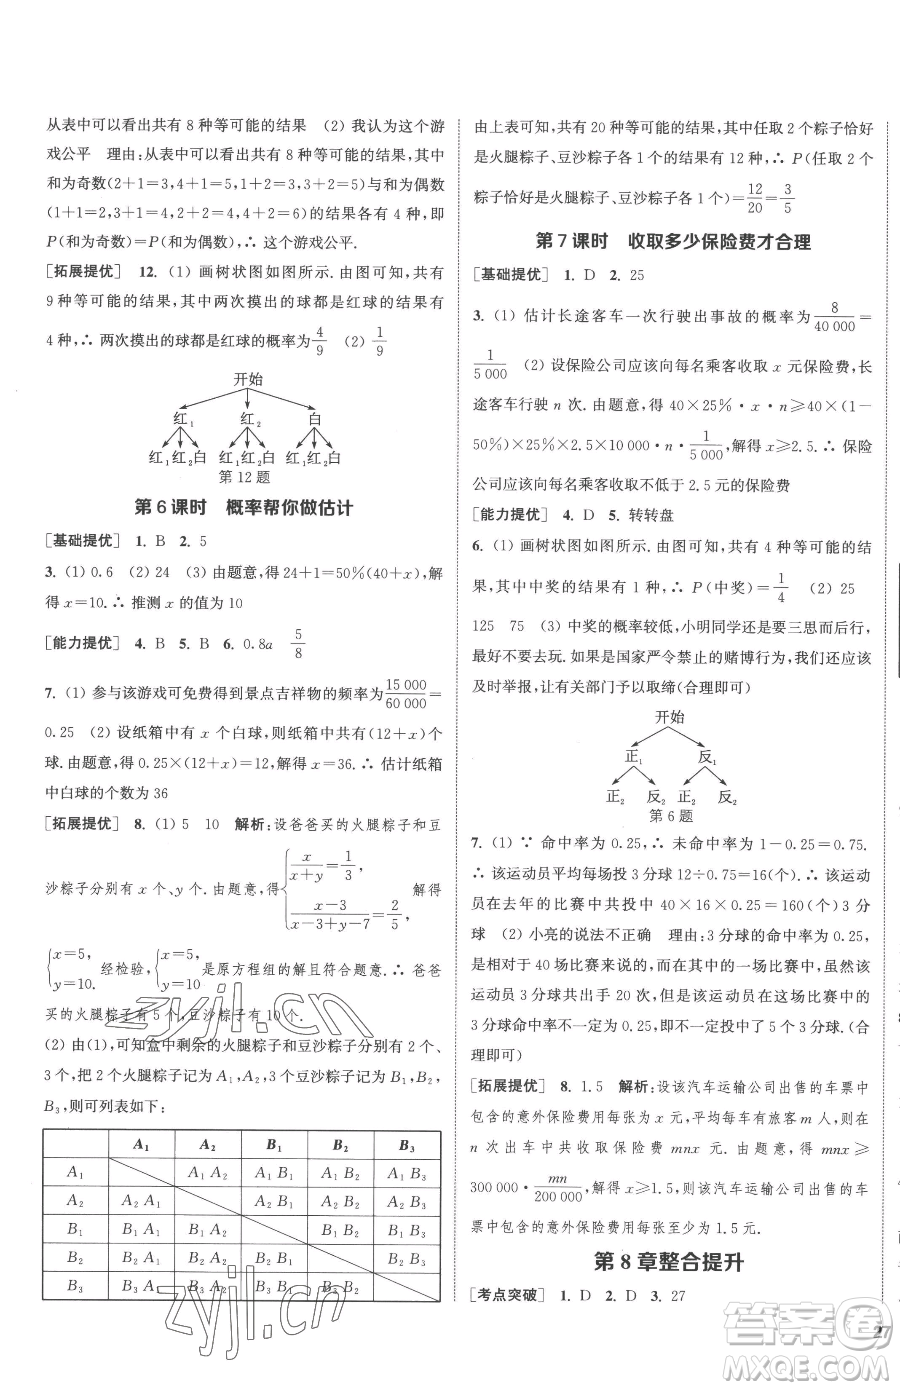 从表中可以看出共有 8 种等可能的结果　(2) 我认为这个游
戏公平　理由:从表中可以看出共有 8 种等可能的结果,其中
和为奇数(2+1=3,4+1=5,1+2=3,3+2=5)与和为偶数
(1+1=2,3+1=4,2+2=4,4+2=6)的结果各有 4 种,即
P(和为奇数)=P(和为偶数),∴ 这个游戏公平.
[拓展提优]　12. (1) 画树状图如图所示. 可以看出,共有
9 种等可能的结果,其中两次摸出的球都是红球的结果有
4 种,∴ 两次摸出的球都是红球的概率为4/9　(2) 1/9
开始
红₁　红₂　白
红₁红₂白　红₁红₂白　红₁红₂白
第 12 题
第 6 课时　概率帮你做估计
[基础提优]　1. B　2. 5
3. (1) 0.6　(2) 24　(3) 由题意,得 24+1=50%(40+x),解
得 x=10. ∴ 推测 x 的值为 10
[能力提优]　4. B　5. B　6. 0.8a　5/8
7. (1) 参与该游戏可免费得到景点吉祥物的频率为15 000/60 000=
0.25　(2) 设纸箱中有 x 个白球,则纸箱中共有(12+x)个
球. 由题意,得 0.25×(12+x)=12,解得 x=36. ∴ 估计纸箱
中白球的个数为 36
[拓展提优]　8. (1) 5　10　解析:设爸爸买的火腿粽子和豆
沙粽子分别有 x 个、y 个. 由题意,得{x/(x+y)=1/3, (x-3)/(x-3+y-7)=2/5, 解得
{x=5, y=10. 经检验,{x=5, y=10 是原方程组的解且符合题意. ∴ 爸爸
买的火腿粽子有 5 个,豆沙粽子有 10 个.
(2) 由(1),可知盒中剩余的火腿粽子和豆沙粽子分别有 2 个、
3 个,把 2 个火腿粽子记为 A₁、A₂,3 个豆沙粽子记为 B₁、B₂、
B₃,则可列表如下:
A₁　A₂　B₁　B₂　B₃
A₁　A₁ A₂　A₁ B₁　A₁ B₂　A₁ B₃
A₂　A₂ A₁　A₂ B₁　A₂ B₂　A₂ B₃
B₁　B₁ A₁　B₁ A₂　B₁ B₂　B₁ B₃
B₂　B₂ A₁　B₂ A₂　B₂ B₁　B₂ B₃
B₃　B₃ A₁　B₃ A₂　B₃ B₁　B₃ B₂
由上表可知,共有 20 种等可能的结果,其中任取 2 个粽子恰好
是火腿粽子、豆沙粽子各 1 个的结果有 12 种,∴ P(任取 2 个
粽子恰好是火腿粽子、豆沙粽子各 1 个)=12/20=3/5
第 7 课时　收取多少保险费才合理
[基础提优]　1. D　2. 25
3. (1) 估计长途客车一次行驶出事故的概率为8/40 000=
1/5 000　(2) 设保险公司应该向每名乘客收取 x 元保险费,长
途客车行驶 n 次. 由题意,得 40×25%·x·n≥40×(1-
50%)×25%×10 000·n·1/5 000,解得 x≥2.5. ∴ 保险
公司应该向每名乘客收取不低于 2.5 元的保险费
[能力提优]　4. D　5. 转转盘
6. (1) 画树状图如图所示. 可以看出,共有 4 种等可能的结
果,其中中奖的结果有 1 种,∴ P(中奖)=1/4　(2) 25
125　75　(3) 中奖的概率较低,小明同学还是要三思而后行,
最好不要去玩. 如果是国家严令禁止的赌博行为,我们还应该
及时举报,让有关部门予以取缔(合理即可)
开始
正₁　反₁
正₂　反₂　正₂　反₂
第 6 题
7. (1) ∵ 命中率为 0.25,∴ 未命中率为 1-0.25=0.75.
∴ 该运动员平均每场共投 3 分球 12÷0.75=16(个). ∴ 该运动
员在去年的比赛中共投中 40×16×0.25=160(个)3 分
球　(2) 小亮的说法不正确　理由:3 分球的命中率为 0.25,
是相对于 40 场比赛来说的,而在其中的一场比赛中,虽然该
运动员 3 分球共出手 20 次,但是该运动员在这场比赛中的
3 分球命中率不一定为 0.25,即不一定投中了 5 个 3 分球. (合
理即可)
[拓展提优]　8. 1.5　解析:设该汽车运输公司出售的车票中
包含的意外保险费用每张为 x 元,平均每车有旅客 m 人,则在
n 次出车中共收取保险费 mnx 元. 由题意,得 mnx≥
300 000×mn/200 000,解得 x≥1.5,则该汽车运输公司出售的车
票中包含的意外保险费用每张至少为 1.5 元.
第 8 章整合提升
[考点突破]　1. D　2. D　3. 27
27
zyjl.cn
zyjl.cn
答案圈
MXQE.COM